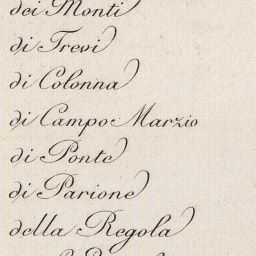 dei Monti
di Trevi
di Colonna
di Campo Marzio
di Ponte
di Parione
della Regola